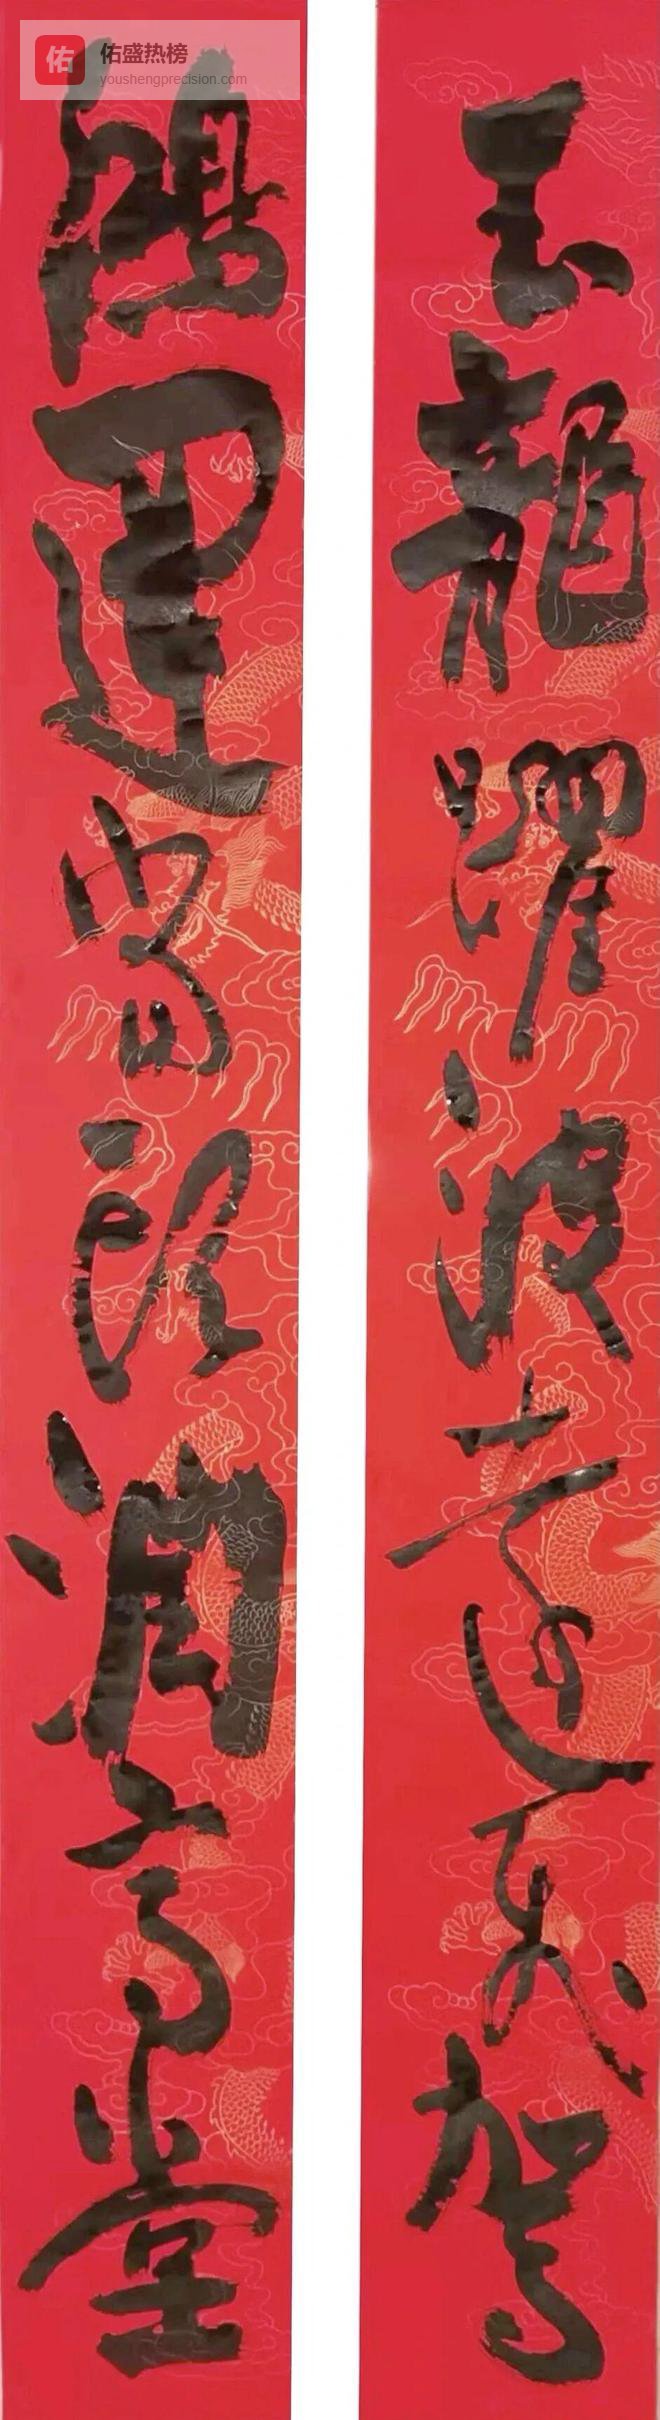 佑 佑盛热榜
youshengprecision.com
玉龍躍波遠來駕
鴻運當頭潤高堂